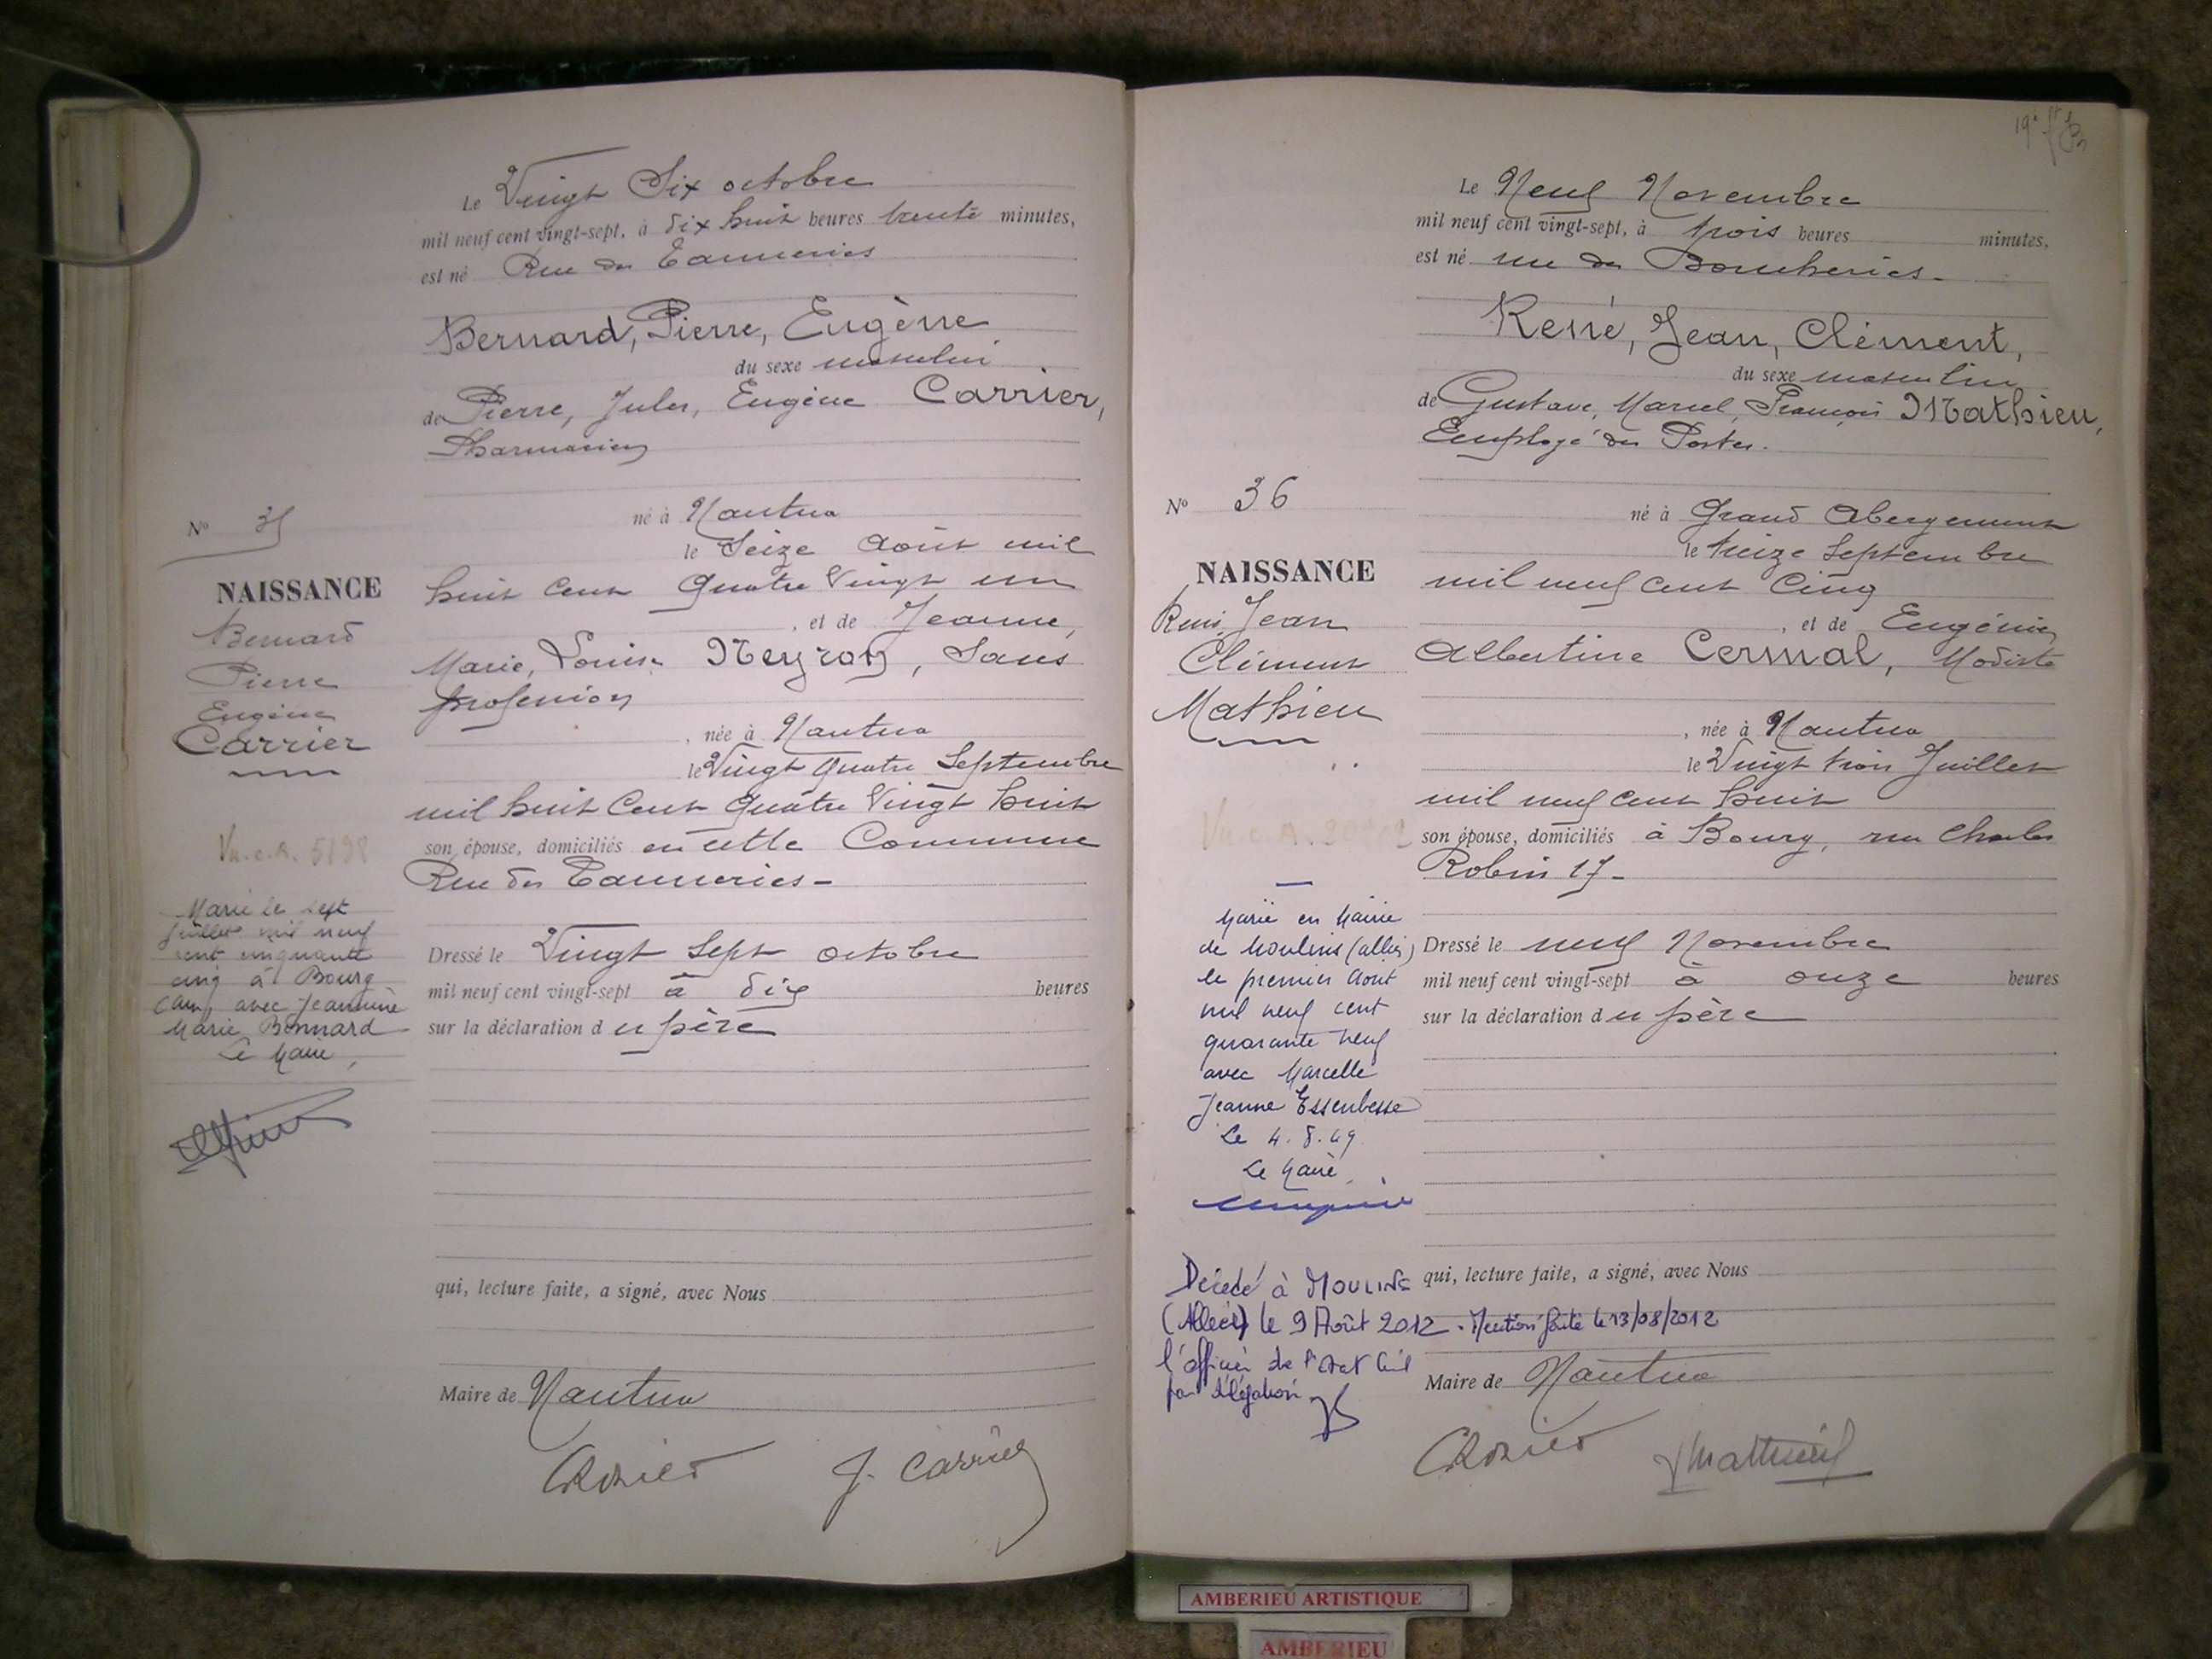 Le Vingt Six octobre
mil neuf cent vingt-sept, à dix huit heures trente minutes,
est né Rue des Tanneries
Bernard, Pierre, Eugène
du sexe masculin
de Pierre, Jules, Eugène Carrier,
Pharmacien
né à Nantua
le Seize Août mil
huit cent Quatre Vingt un
, et de Jeanne,
Marie, Louise Neyron, Sans
profession
, née à Nantua
le Vingt Quatre Septembre
mil huit Cent Quatre Vingt huit
son épouse, domiciliés en cette Commune
Rue des Tanneries -
Dressé le Vingt Sept octobre
mil neuf cent vingt-sept à dix heures
sur la déclaration du père
qui, lecture faite, a signé, avec Nous
Maire de Nantua
J. Carrier
No 35
NAISSANCE
Bernard
Pierre
Eugène
Carrier
Vu.c.A. 5198
Marié le sept
juillet mil neuf
cent cinquante
cinq à Bourg
(Ain) avec Jeannine
Marie Bonnard
Le Maire,
Le Neuf Novembre
mil neuf cent vingt-sept, à trois heures minutes,
est né rue des Boucheries -
René, Jean, Clément,
du sexe masculin
de Gustave, Marcel, François Mathieu,
Employé des Postes.
né à Grand Abergement
le treize Septembre
mil neuf cent Cinq
, et de Eugénie
Albertine Cermal, Modiste
, née à Nantua
le Vingt trois Juillet
mil neuf cent huit
son épouse, domiciliés à Bourg, rue Charles
Robin 17 -
Dressé le neuf Novembre
mil neuf cent vingt-sept à onze heures
sur la déclaration du père
qui, lecture faite, a signé, avec Nous
Maire de Nantua
Mathieu
No 36
NAISSANCE
René, Jean
Clément
Mathieu
Vu.c.A.
Marié en Mairie
de Moulins (allier)
le premier Août
mil neuf cent
quarante neuf
avec Marcelle
Jeanne Essenbesse
Le 4.8.49
Le Maire,
Décédé à MOULINS
(Allier) le 9 Août 2012 - Mention faite le 13/08/2012
l'officier de l'Etat Civil
par délégation
AMBERIEU ARTISTIQUE
AMBERIEU